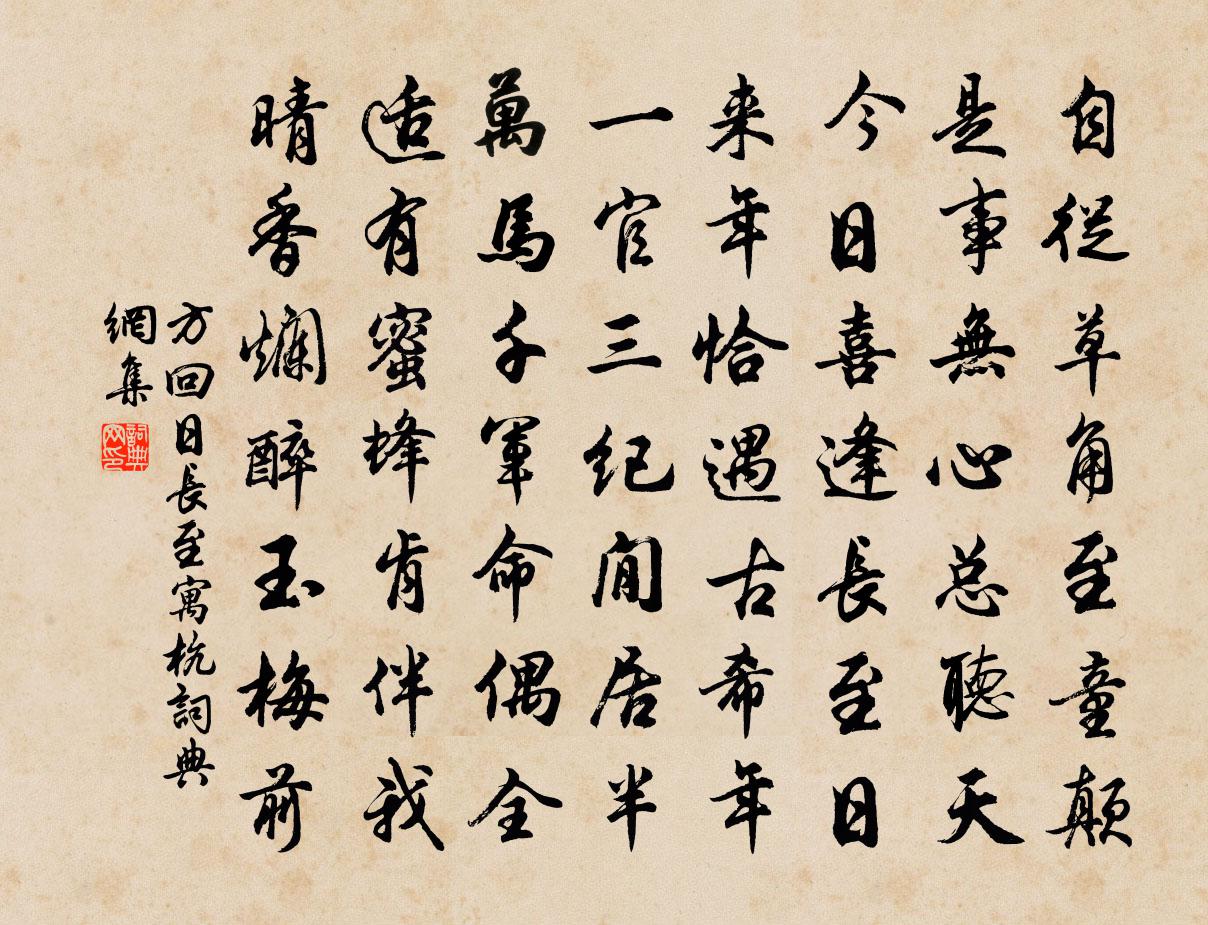 自從草角至童顛
是事無心总聽天
今日喜逢長至日
来年恰遇古希年
一官三纪閒居半
萬馬千軍命偶全
适有蜜蜂肯伴我
晴香爛醉玉梅前
方回日長至寓杭詞典
網集
詞典网印